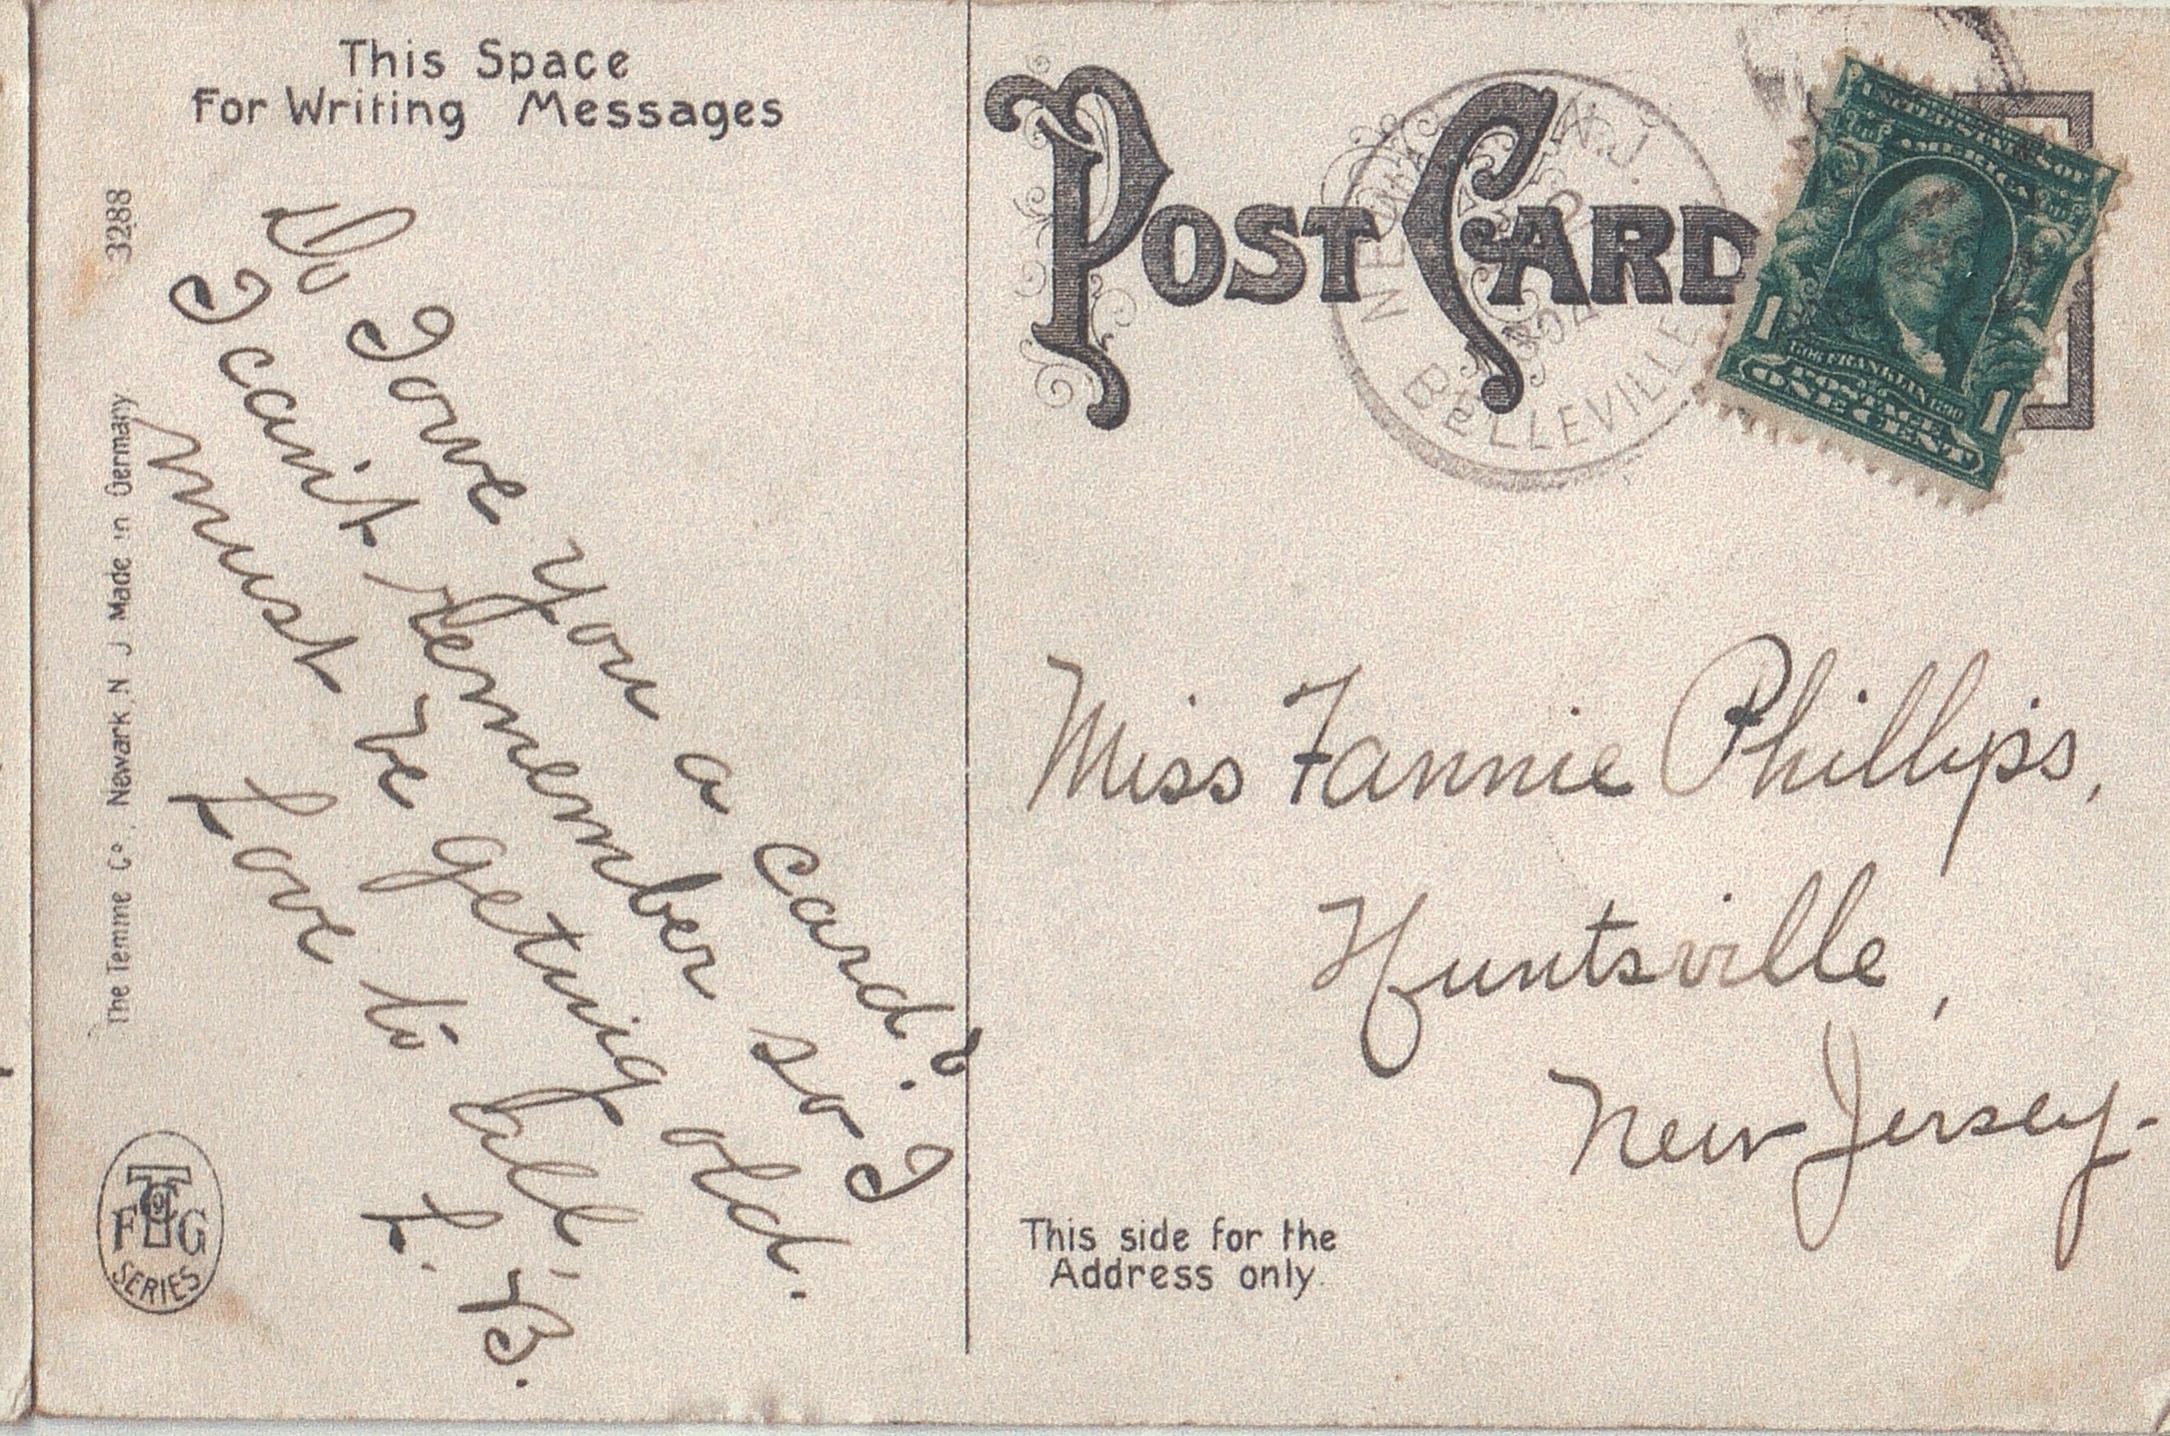 This Space
For Writing Messages
3288
The Temme Co., Newark, N J Made in Germany
Do I owe you a card?
I can't remember so I
must be getting old.
Love to all,
L. B.
T Co
F G
SERIES
POST CARD
NEWARK N.J.
BELLEVILLE
UNITED STATES OF
AMERICA
1706 FRANKLIN 1790
POSTAGE
1 ONE CENT 1
Miss Fannie Phillips,
Huntsville,
New Jersey-
This side for the
Address only.